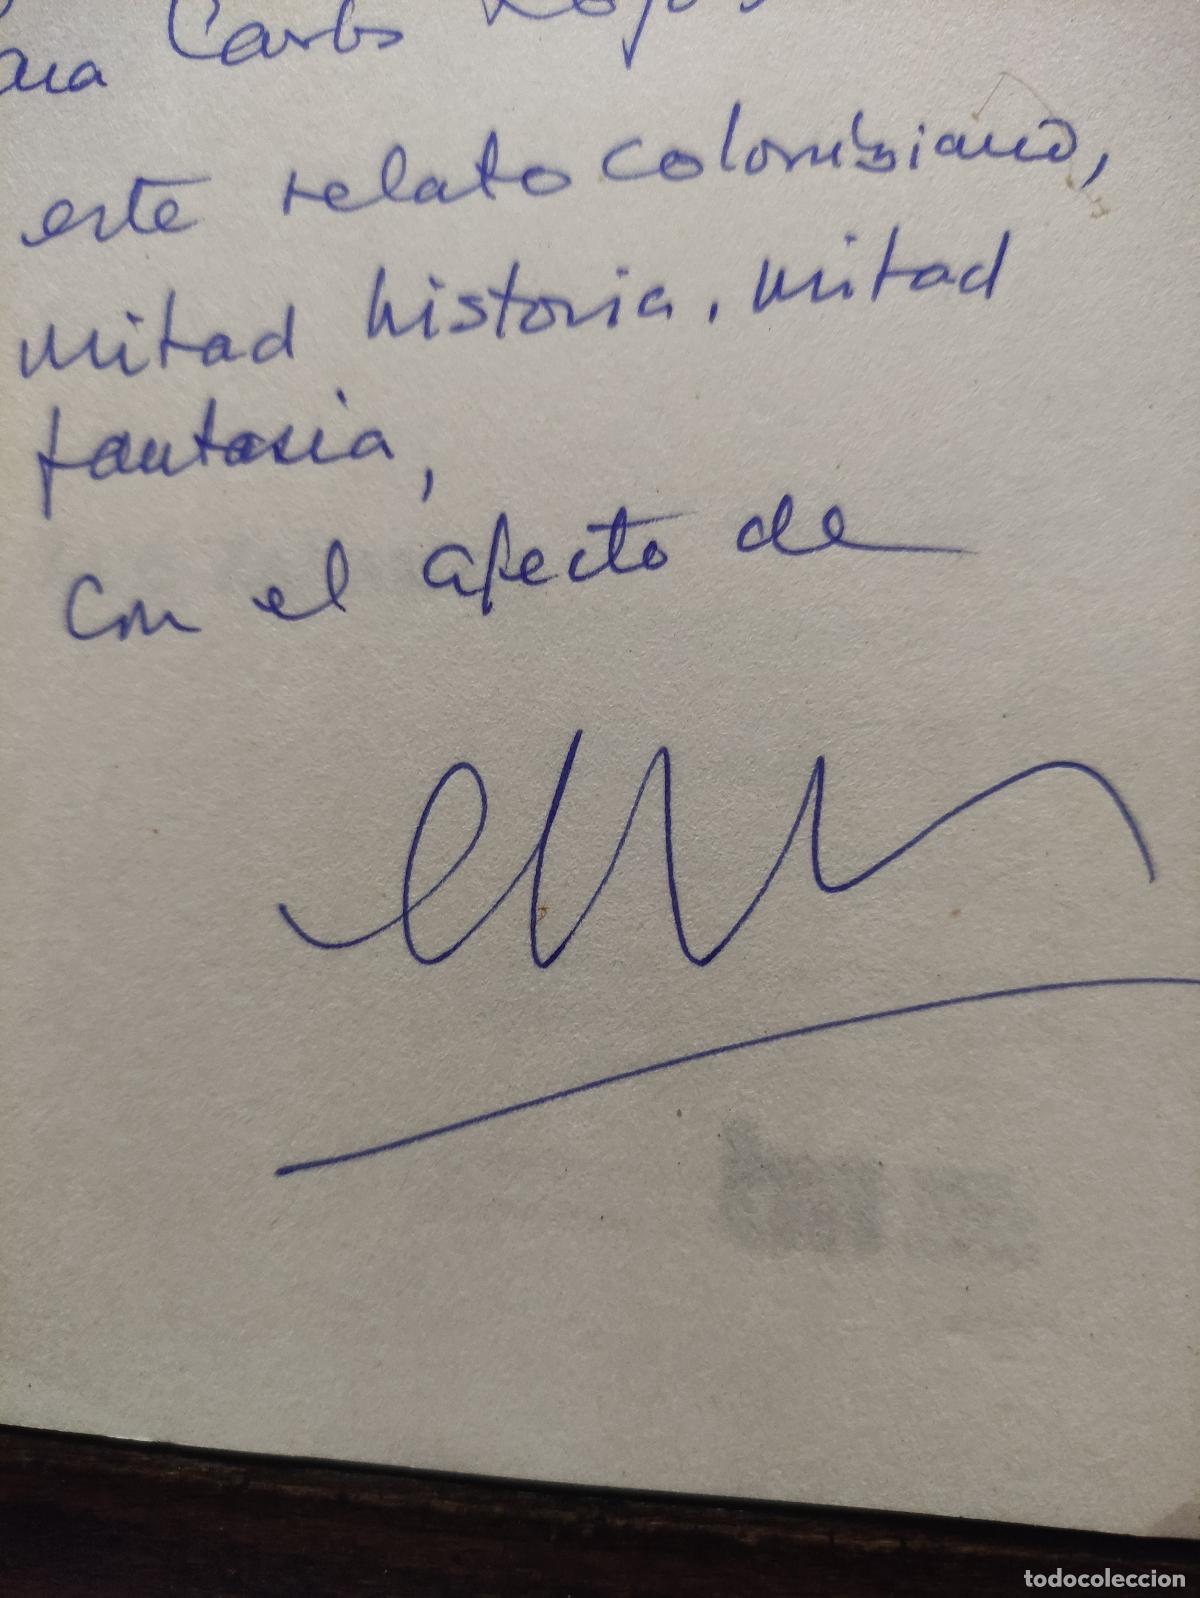 Carlos
este relato colombiano,
mitad historia, mitad
fantasia,
con el afecto de
todocoleccion